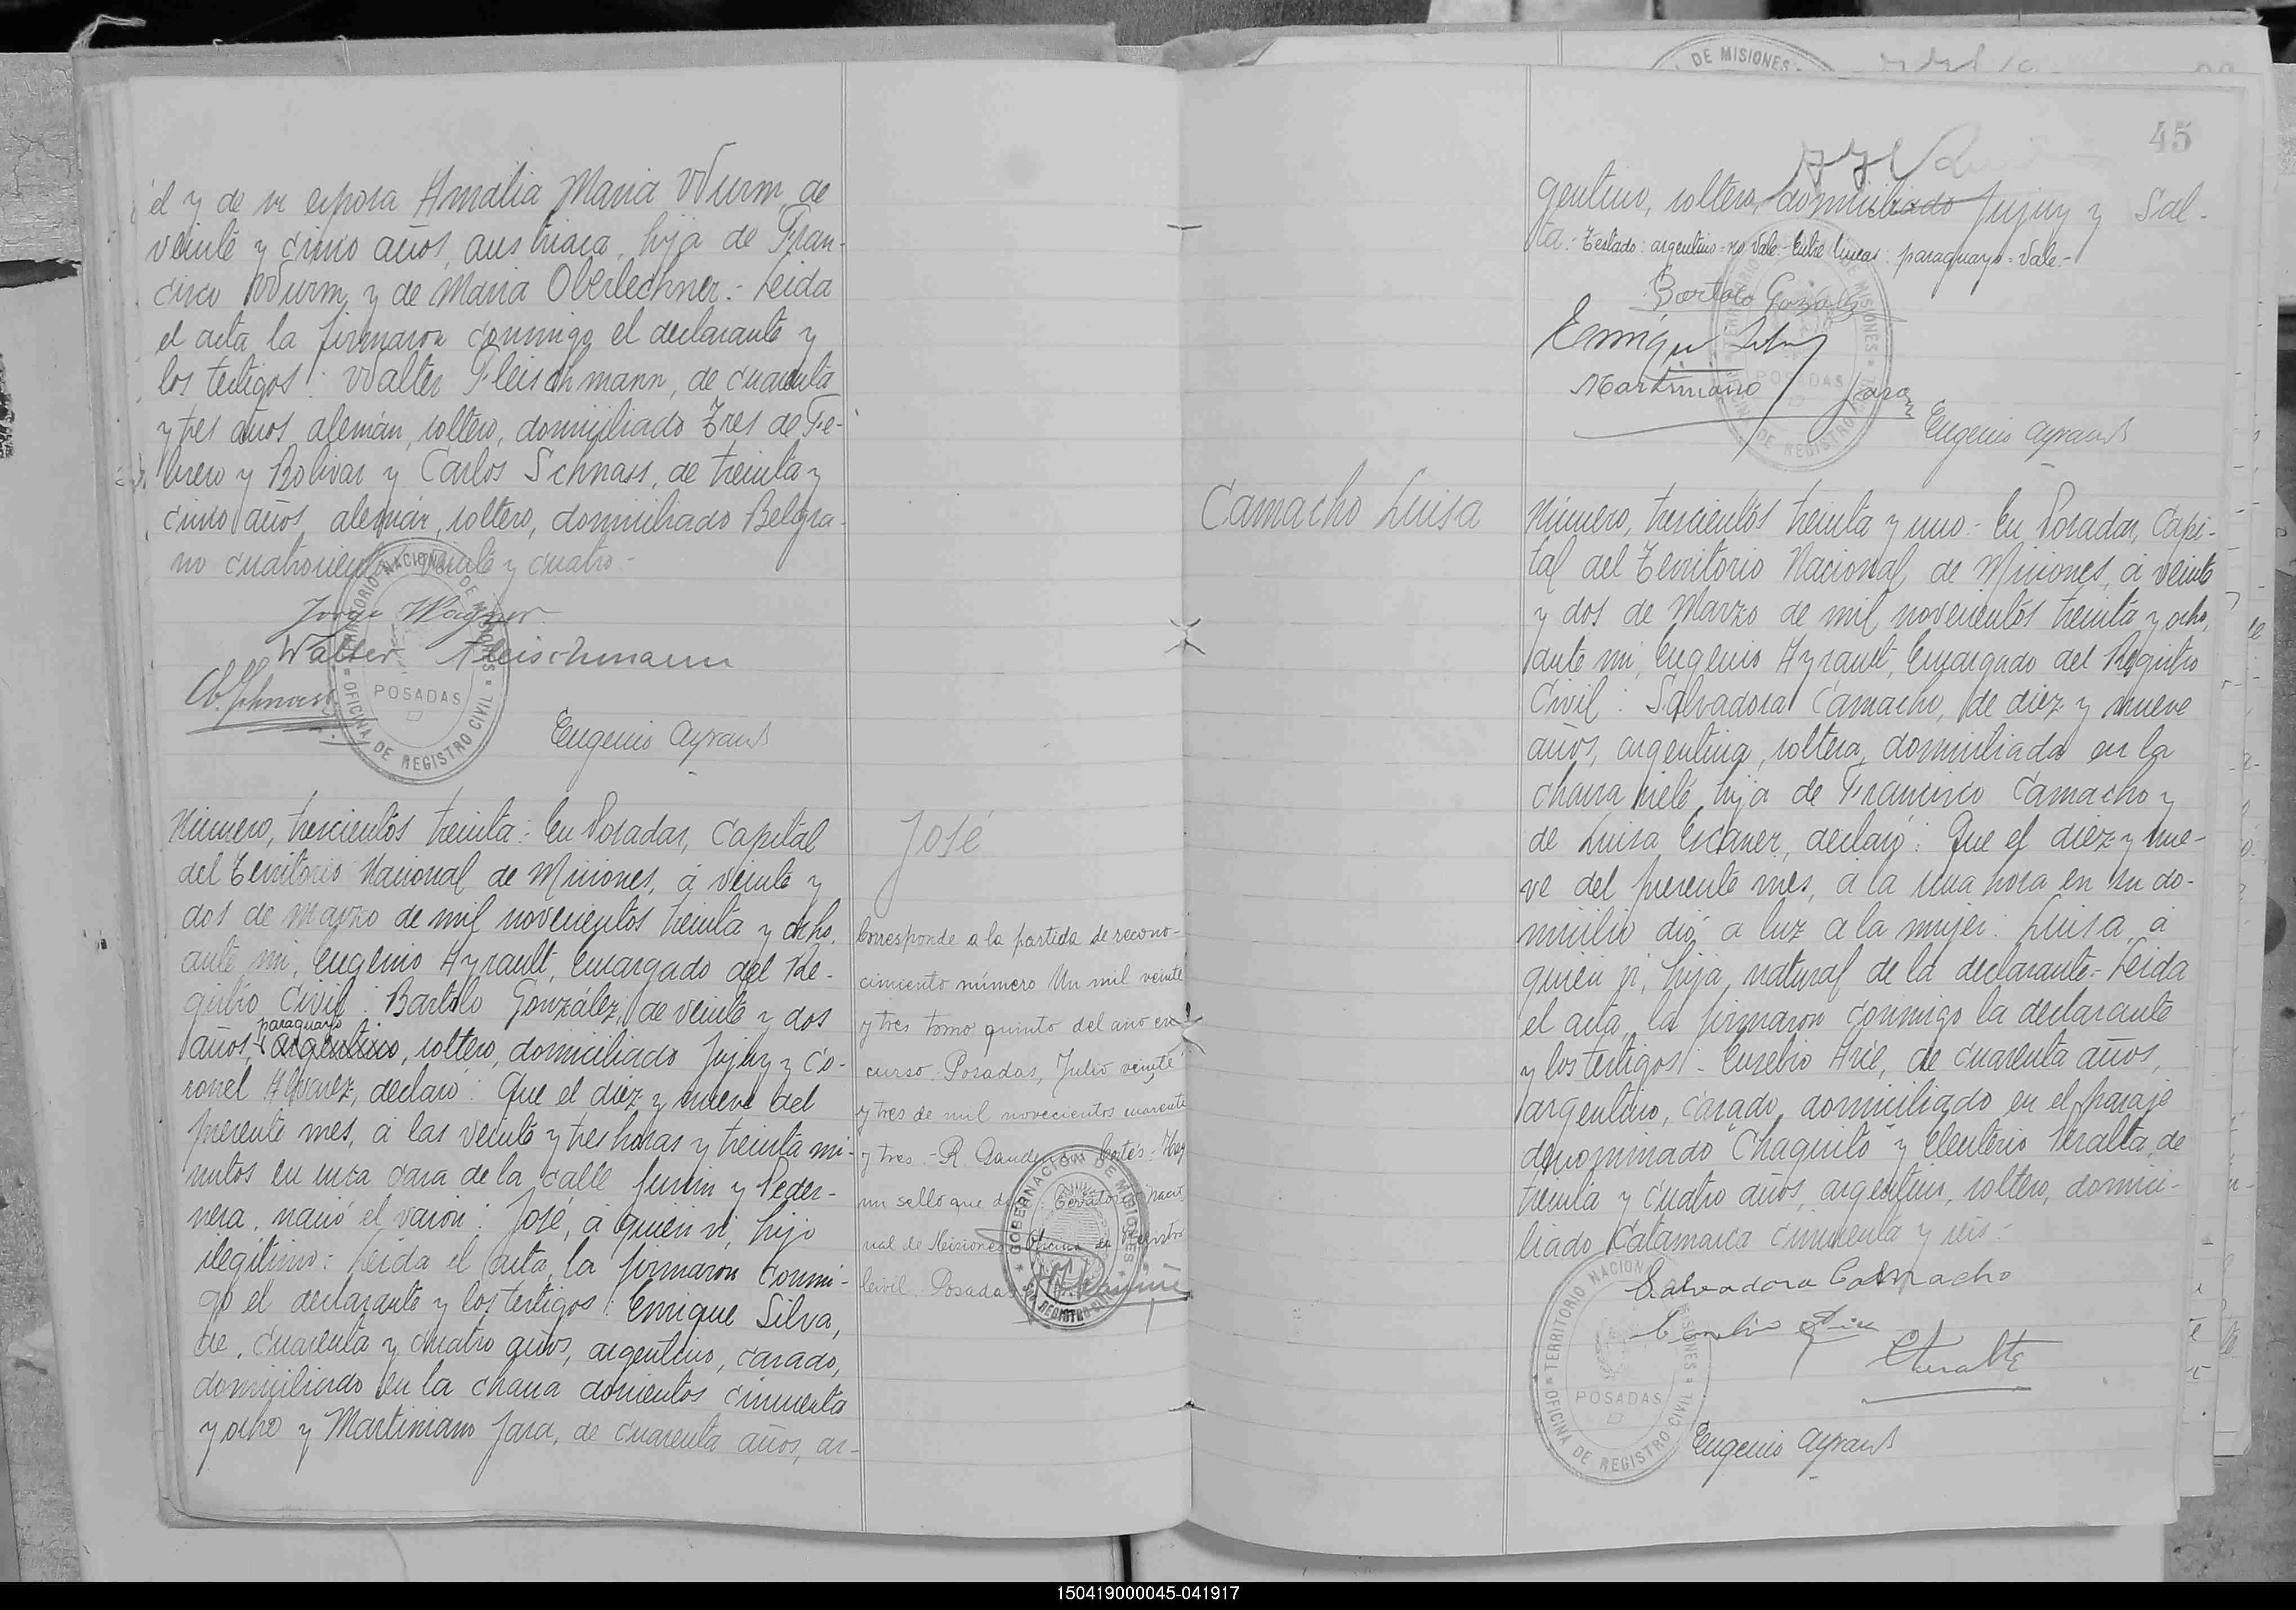 él y de su esposa Amalia Maria Wurm, de
veinte y cinco años, austriaca, hija de Fran-
cisco Wurm y de Maria Oberlechner.- Leida
el acta la firmaron conmigo el declarante y
los testigos: Walter Fleischmann, de cuarenta
y tres años, alemán, soltero, domiciliado Tres de Fe-
brero y Bolivar y Carlos Schnass, de treinta y
cinco años, alemán, soltero, domiciliado Belgra-
no cuatrocientos veinte y cuatro.-
Jorge Wagner
Walter Fleischmann
Eugenio Ayrault
TERRITORIO NACIONAL DE MISIONES
POSADAS
OFICINA DE REGISTRO CIVIL
Número, trescientos treinta: En Posadas, Capital
del Territorio Nacional de Misiones, á veinte y
dos de Marzo de mil novecientos treinta y ocho,
ante mi, Eugenio Ayrault, Encargado del Re-
gistro Civil: Bartolo González, de veinte y dos
paraguayo
años, argentino, soltero, domiciliado Jujuy y Co-
ronel Alvarez, declaró: Que el diez y nueve del
presente mes, á las veinte y tres horas y treinta mi-
nutos en una casa de la calle Junin y Peder-
nera, nació el varón: José, á quien vi, hijo
ilegitimo: Leida el acta, la firmaron conmi-
go el declarante y los testigos: Enrique Silva,
de cuarenta y cuatro años, argentino, casado,
domiciliado en la chacra doscientos cincuenta
y ocho y Martiniano Jara, de cuarenta años, ar-
José
Corresponde a la partida de recono-
cimiento número Un mil veinte
y tres tomo quinto del año en
curso. Posadas, Julio veinte
y tres de mil novecientos cuarenta
y tres.- R. Cortés.- Hay
un sello que
nal de Misiones Oficina de Registro
Civil. Posadas
GOBERNACIÓN DE MISIONES
REGISTRO CIVIL
DE MISIONES
45
gentino, soltero, domiciliado Jujuy y Sal-
ta.- Testado: argentino = no vale.- Entre lineas: paraguayo = vale.-
Bartolo González
Enrique Silva
Martiniano Jara
Eugenio Ayrault
TERRITORIO NACIONAL DE MISIONES
POSADAS
OFICINA DE REGISTRO CIVIL
Camacho Luisa
Número, trescientos treinta y uno.- En Posadas, Capi-
tal del Territorio Nacional, de Misiones, á veinte
y dos de Marzo de mil novecientos treinta y ocho,
ante mi, Eugenio Ayrault, Encargado del Registro
Civil: Salvadora Camacho, de diez y nueve
años, argentina, soltera, domiciliada en la
chacra siete, hija de Francisco Camacho y
de Luisa Escaner, declaró: Que el diez y nue-
ve del presente mes, á la una hora en su do-
micilio dió a luz a la mujer: Luisa, á
quien vi, hija natural de la declarante.- Leida
el acta, la firmaron conmigo la declarante
y los testigos: Eusebio Arce, de cuarenta años,
argentino, casado, domiciliado en el paraje
denominado "Chaquito" y Eleuterio Peralta, de
treinta y cuatro años, argentino, soltero, domici-
liado Catamarca cincuenta y seis.-
Salvadora Camacho
Eusebio Arce
EPeralta
Eugenio Ayrault
TERRITORIO NACIONAL DE MISIONES
POSADAS
OFICINA DE REGISTRO CIVIL
150419000045-041917